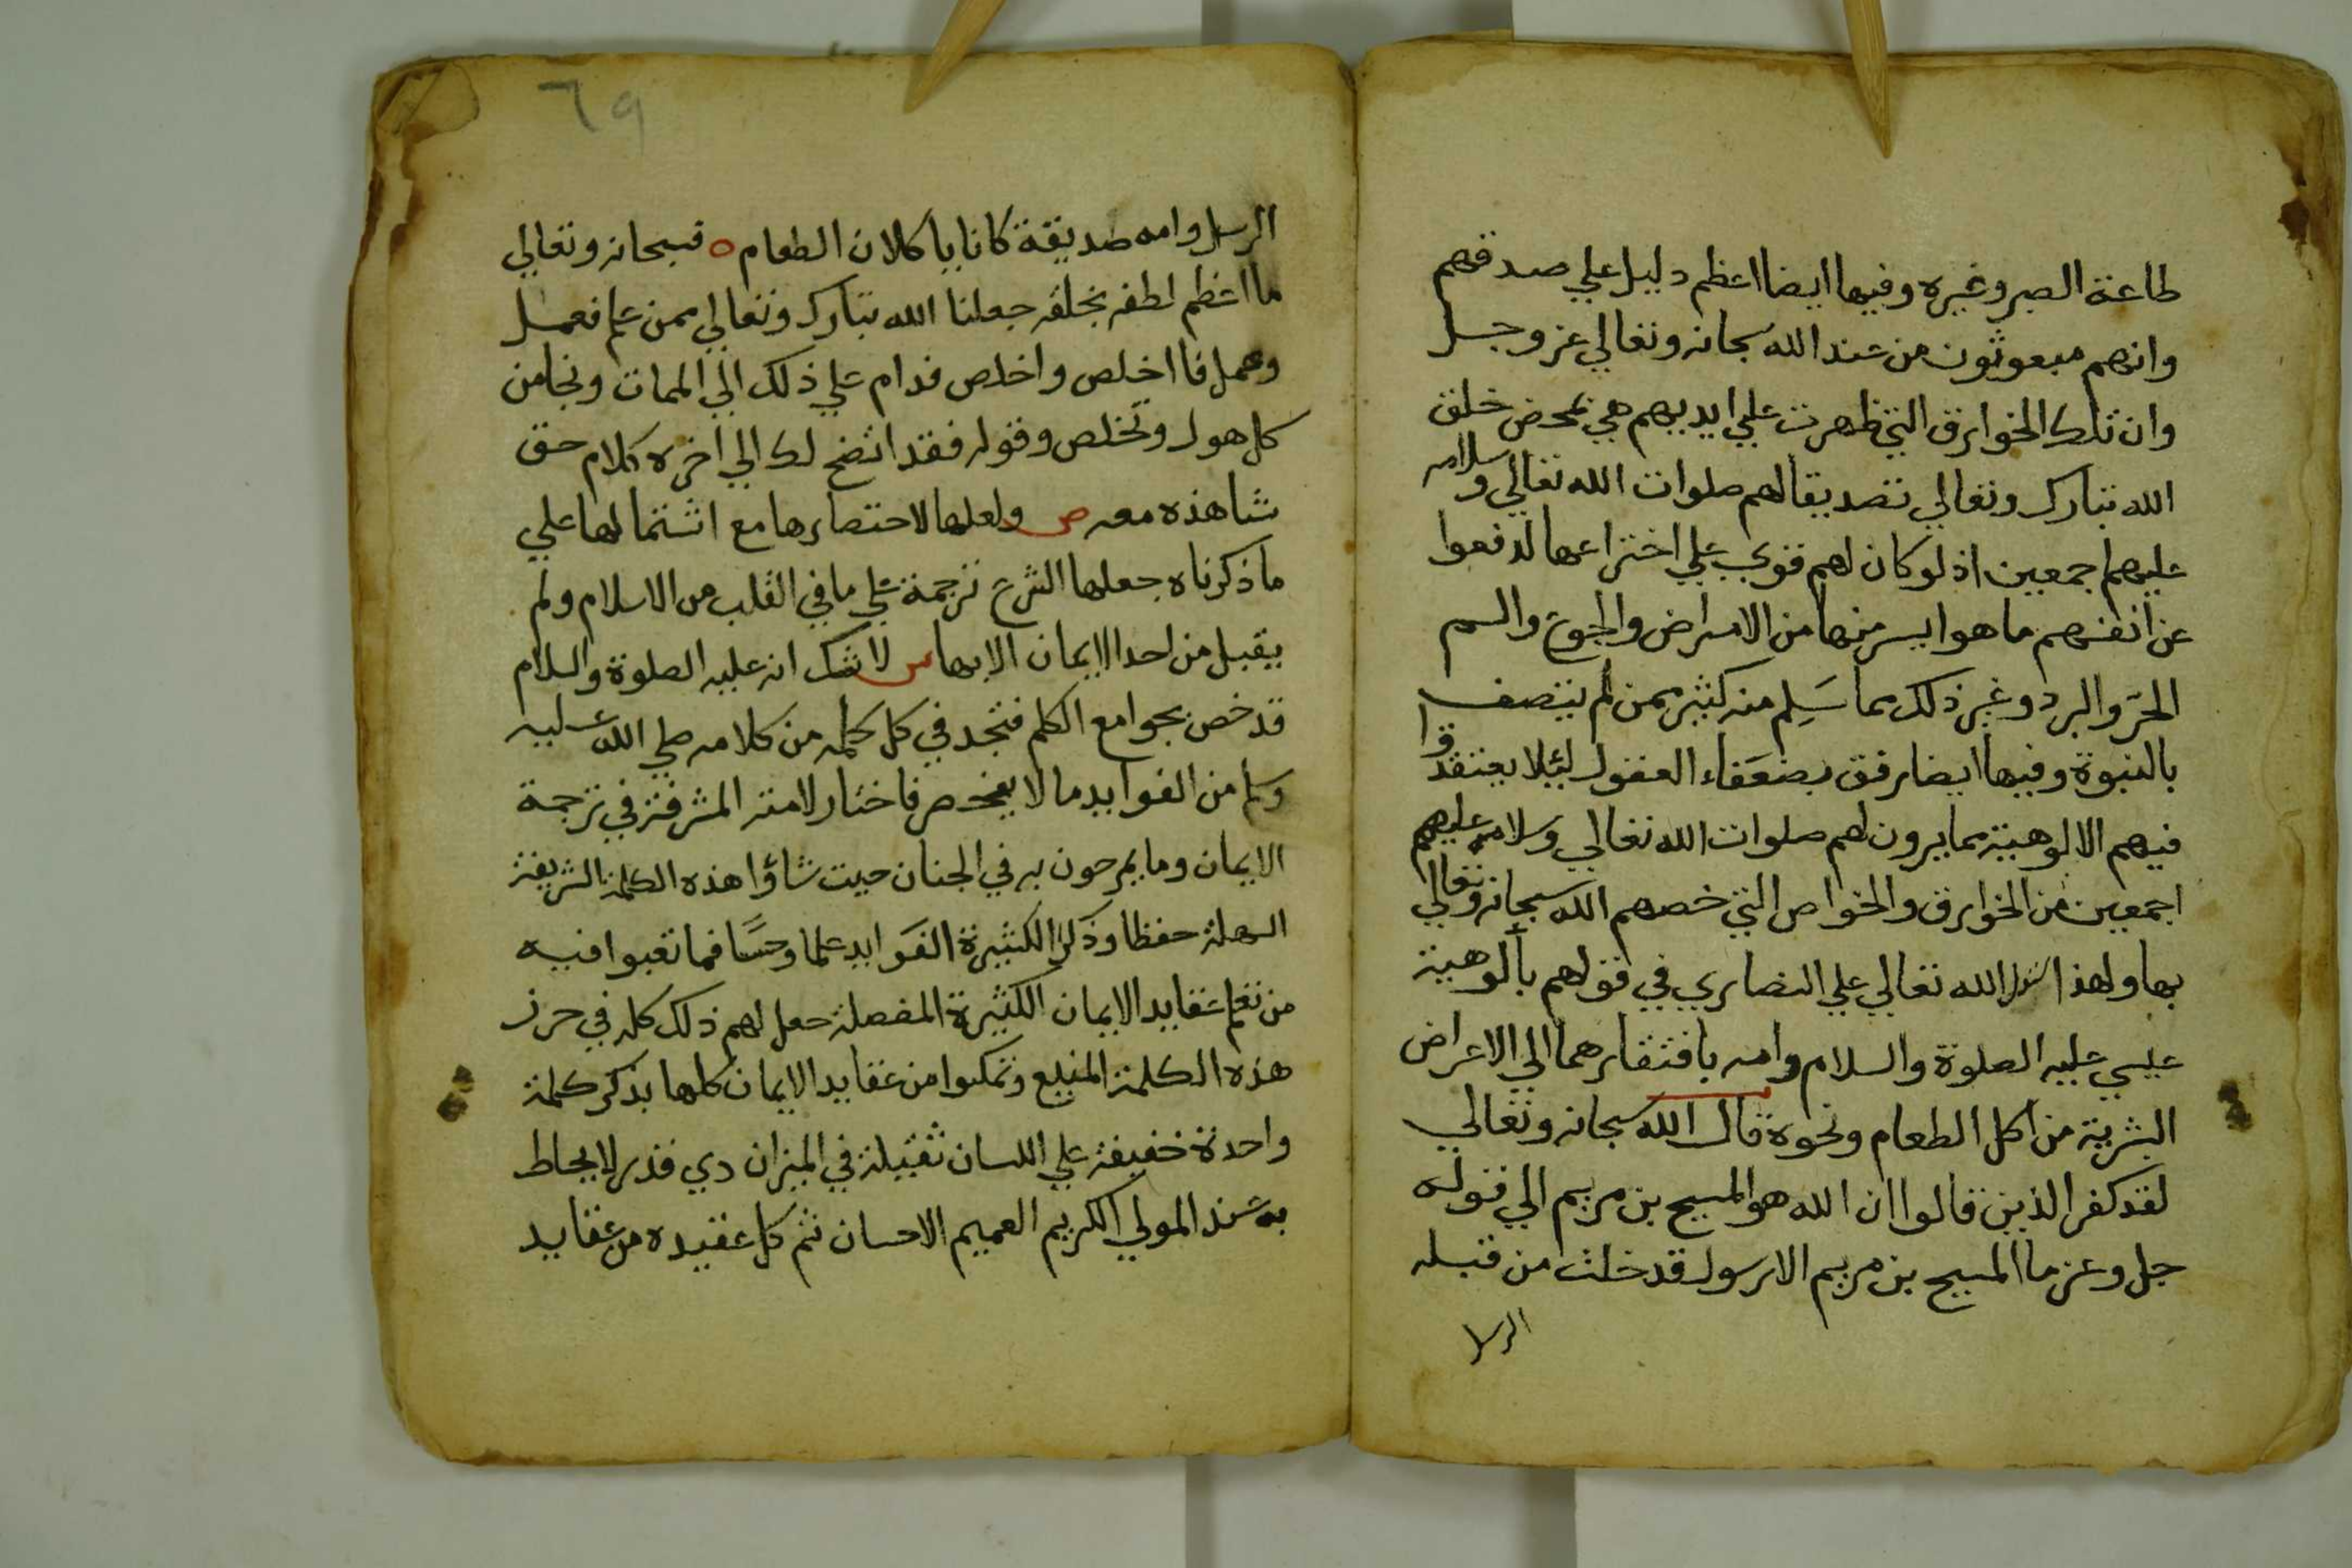 طاعة الصبر وغيره وفيها ايضا اعظم دليل علي صدقهم
وانهم مبعوثون من عند الله سبحانه وتعالي عز وجل
وان تلك الخوارق التي ظهرت علي ايديهم هي بمحض خلق
الله تبارك وتعالي تصديقا لهم صلوات الله تعالي وسلامه
عليهم اجمعين اذ لو كان لهم قوي علي اختراعها لدفعوا
عن انفسهم ما هو ايسر منها من الامراض والجوع والسم
الحرّ والبرد وغير ذلك مما سَلِم منه كثير ممن لم يتصف
بالنبوة وفيها ايضا رفق بضعَفاء العقول ليئلا يعتقدوا
فيهم الالوهية بما يرون لهم صلوات الله تعالي وسلامه عليهم
اجمعين من الخوارق والخواص التي خصهم الله سبحانه وتعالي
بها ولهذا الله تعالي علي النصاري في قولهم بألوهية
عيسي عليه الصلوة والسلام وامه بافتقارهما الي الاعراض
البشرية من اكل الطعام ونحوه قال الله سبحانه وتعالي
لقد كفر الذين قالوا ان الله هو المسيح بن مريم الي قوله
جل وعز ما المسيح بن مريم الا رسول قد خلت من قبله
الرسل
٦٩
الرسل وامه صديقة كانا ياكلان الطعام ه فسبحانه وتعالي
ما اعظم لطفه بخلقه جعلنا الله تبارك وتعالي ممن علم فعمل
وعمل فااخلص واخلص فدام علي ذلك الي الممات ونجا من
كل هول وتخلص وقوله فقد اتضح لك الي اخره كلام حق
شاهذه معه ص ولعلها لاختصارها مع اشتمالها علي
ما ذكرناه جعلها الشرع ترجمة علي ما في القلب من الاسلام ولم
يقبل من احد الايمان الا بها س لا شك انه عليه الصلوة والسلام
قد خص بجوامع الكلم فتجد في كل كلمه من كلامه صلي الله عليه
وسلم من الفوايد ما لا ينحصر فاختار لامته المشرفة في ترجمة
الايمان وما يمرحون به في الجنان حيت شاؤا هذه الكلمة الشريفة
السهلة حفظا وذكرا الكثيرة الفوايد علما وحسًا فما تعبوا فيه
من تعلم عقايد الايمان الكثيرة المفصلة جعل لهم ذلك كله في حرز
هذه الكلمة المنيع وتمكنوا من عقايد الايمان كلها بذكر كلمة
واحدة خفيفة علي اللسان ثقيلة في الميزان دي قدر لا يحاط
به عند المولي الكريم العميم الاحسان ثم كل عقيده من عقايد